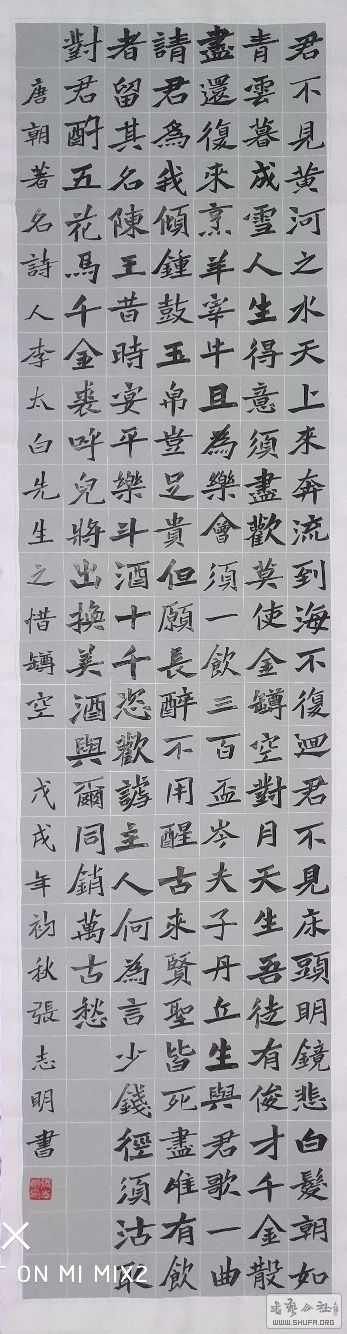 君不見黃河之水天上來奔流到海不復迴君不見床頭明鏡悲白髮朝如
青雲暮成雪人生得意須盡歡莫使金罇空對月天生吾徒有俊才千金散
盡還復來烹羊宰牛且為樂會須一飲三百盃岑夫子丹丘生與君歌一曲
請君為我傾鍾鼓玉帛豈足貴但願長醉不用醒古來賢聖皆死盡唯有飲
者留其名陳王昔時宴平樂斗酒十千恣歡謔主人何為言少錢徑須沽取
對君酌五花馬千金裘呼兒將出換美酒與爾同銷萬古愁
唐朝著名詩人李太白先生之惜罇空 戊戌年初秋張志明書
T ON MI MIX2
WWW.SHUFA.ORG